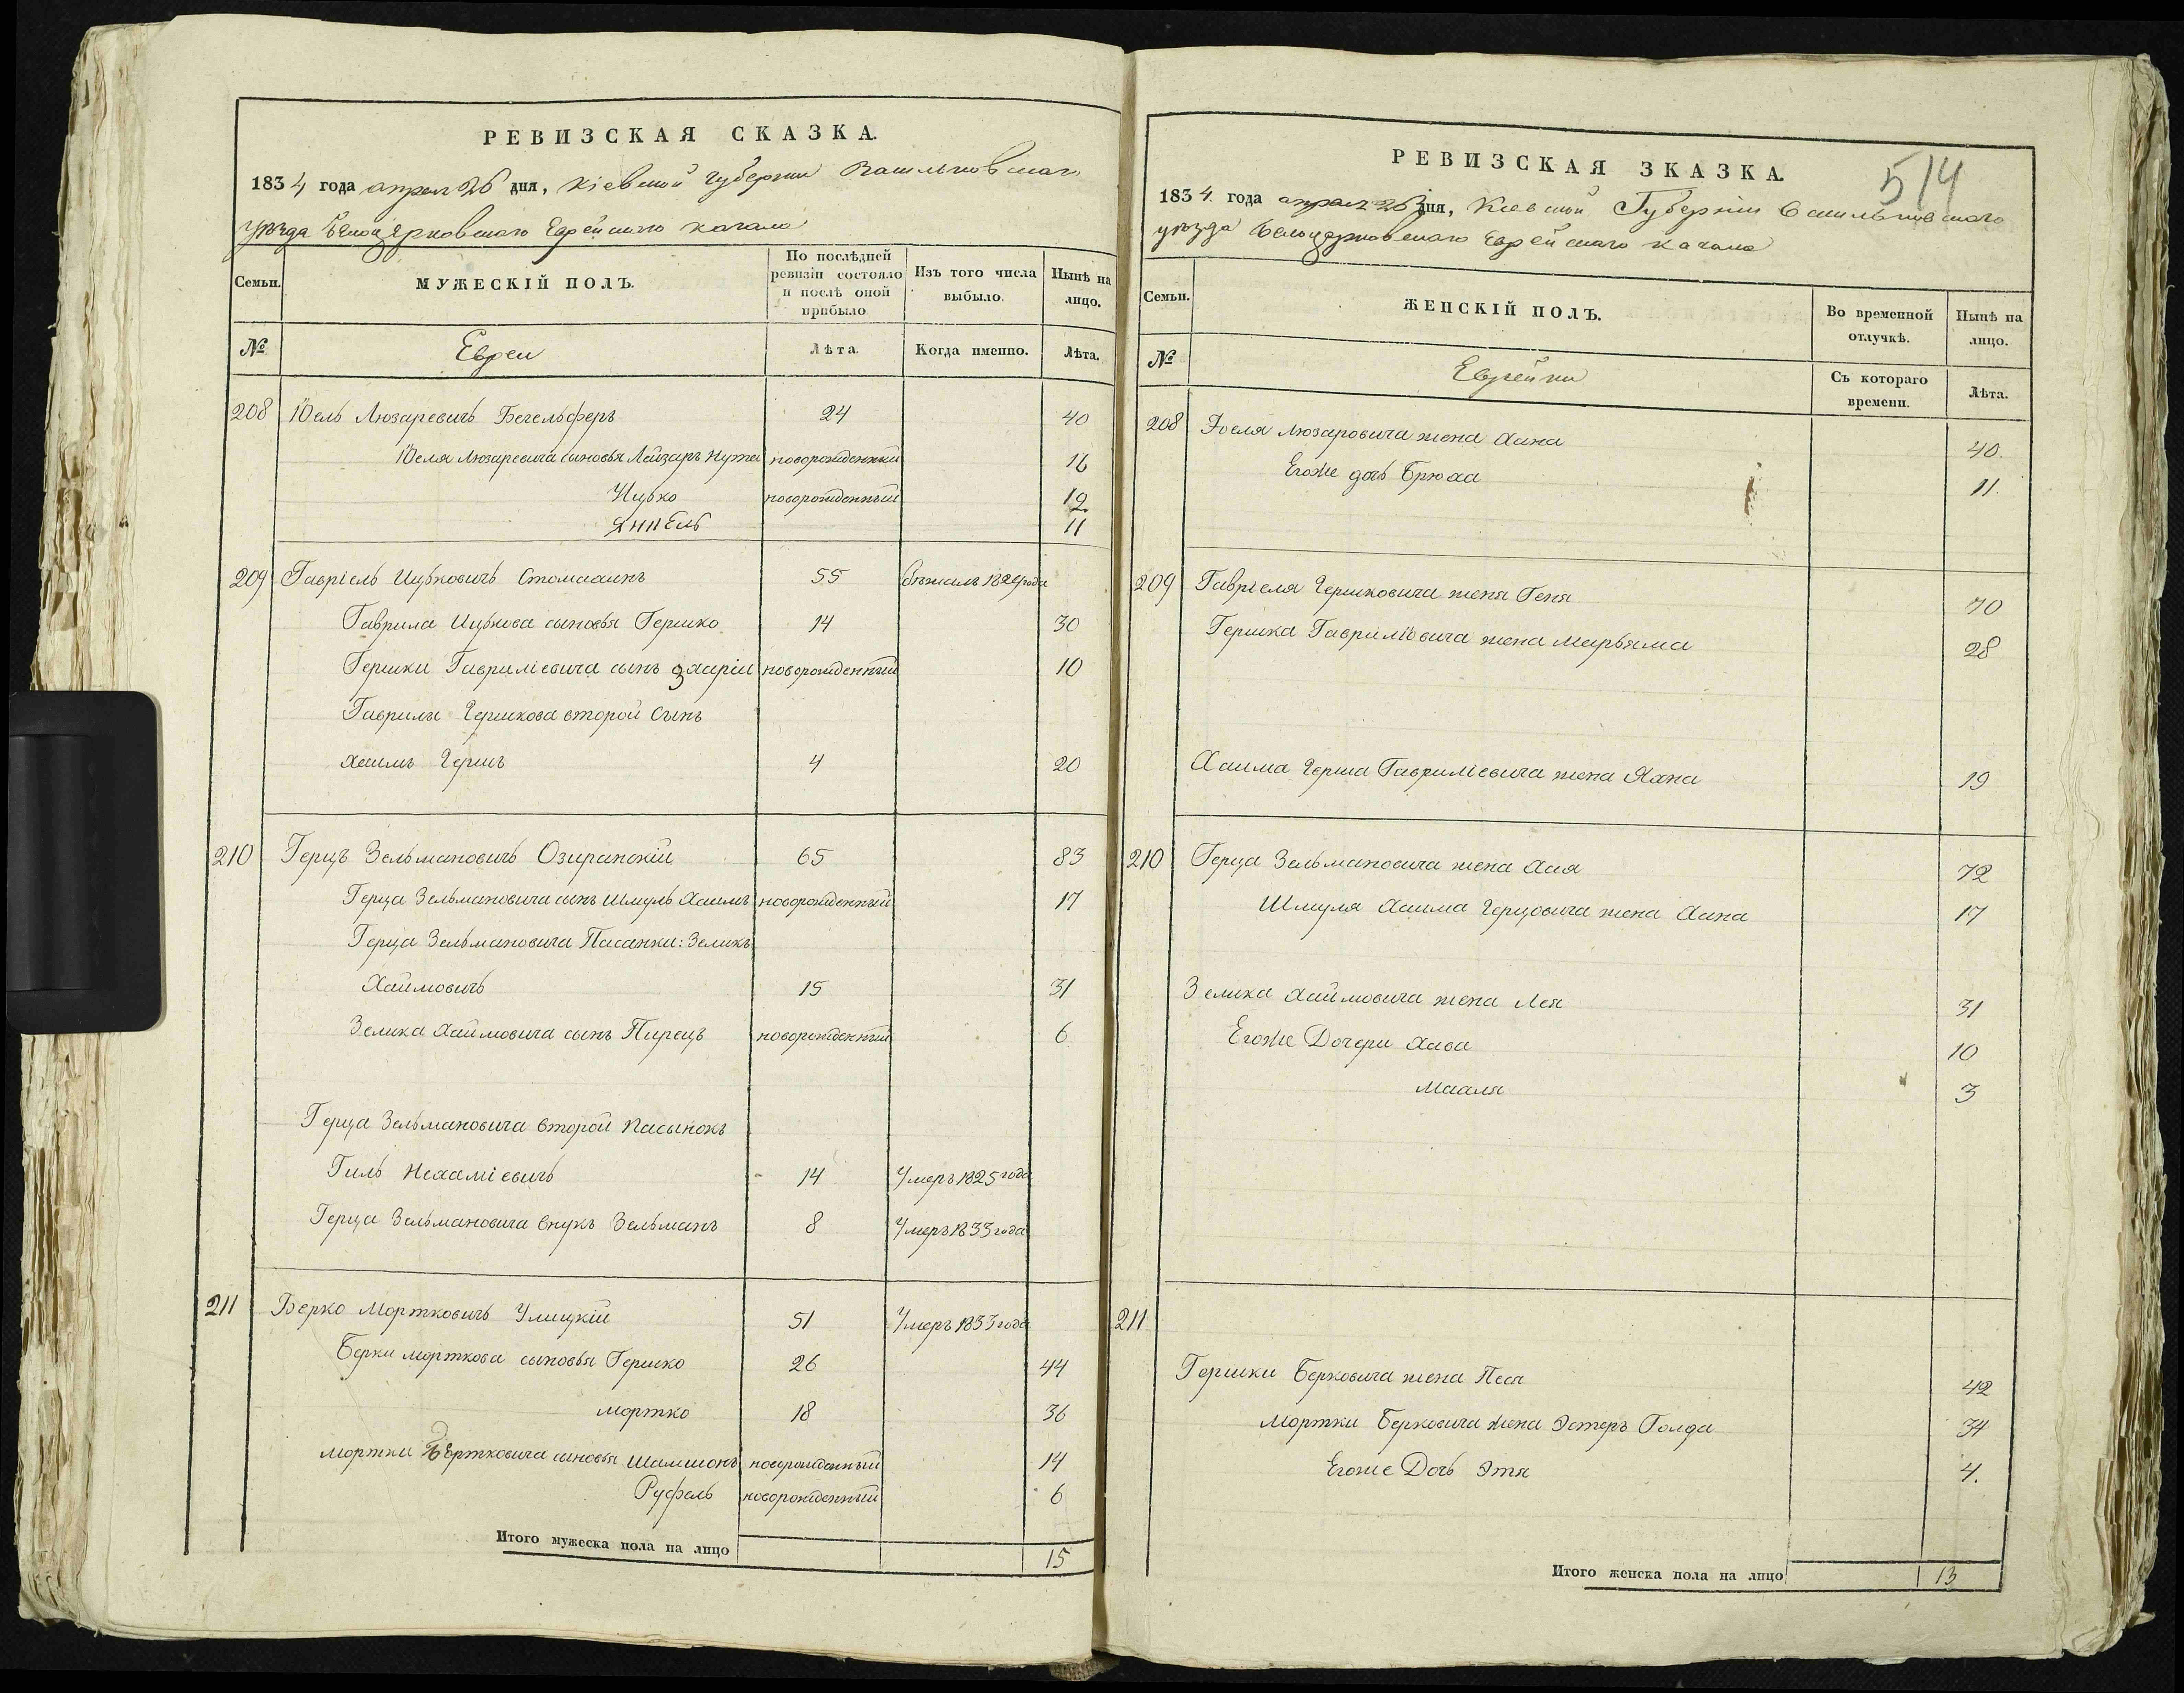 РЕВИЗСКАЯ СКАЗКА.
1834 года апрел 26 дня, Кіевской Губерни Васильковскаго
уѣзда Белоцерковскаго Еврейскаго кагала
Семьи. МУЖЕСКІЙ ПОЛЪ. По послѣдней ревизіи состояло и послѣ оной прибыло Изъ того числа выбыло. Нынѣ на лицо.
№ Евреи Лѣта. Когда именно. Лѣта.
208 Іоель Люзаревичъ Бегельферъ 24 40
Іоеля Люзаревича сыновья Лейзаръ Нужен новорожденный 16
Ицько новорожденный 12
Яннель 11
209 Гавріель Ицьковичъ Стомахинъ 55 бѣжалъ 1824 года
Гаврила Ицькова сыновья Гершко 14 30
Гершки Гавриліевича сынъ Захаріи новорожденный 10
Гаврилы Гершкова второй сынъ
Хаимъ Гершъ 4 20
210 Герцъ Зельмановичъ Озиранскій 65 83
Герца Зельмановича сынъ Шмуль Хаимъ новорожденный 17
Герца Зельмановича Пасанки: Зеликъ
Хаймовичъ 15 31
Зелика Хаймовича сынъ Пирецъ новорожденный 6
Герца Зельмановича второй пасынокъ
Гиль Нехаміевичъ 14 Умеръ 1825 года
Герца Зельмановича внукъ Зельманъ 8 Умеръ 1833 года
211 Берко Мортковичъ Улицкій 51 Умеръ 1833 года
Берки морткова сыновья Гершко 26 44
мортко 18 36
мортки Бертковича сыновья Шамшонъ новорожденный 14
Руфель новорожденный 6
Итого мужеска пола на лицо 15
РЕВИЗСКАЯ ЗКАЗКА. 514
1834. года апрел 26 дня, Киевской Губерніи Васильковскаго
уѣзда Белоцерковскаго Еврейскаго Кагала
Семьи. ЖЕНСКІЙ ПОЛЪ. Во временной отлучкѣ. Нынѣ на лицо.
№ Еврейки Съ котораго времени. Лѣта.
208 Іоеля Люзаровича жена Хана 40.
Егоже дочь Брюха 11.
209 Гавріеля Гершковича жена Геня 70
Гершка Гавриліовича жена Мирьяма 28
Хаима Герша Гавриліевича жена Хана 19
210 Герца Зельмановича жена Хая 72
Шмуля Хаима Герцовича жена Хана 17
Зелика Хаймовича жена Лея 31
Егоже Дочери Хава 10
Махля 3
211
Гершки Берковича жена Песя 42
Мортки Берковича жена Эстеръ Голда 34
Егоже Дочь Этя 4.
Итого женска пола на лицо 13